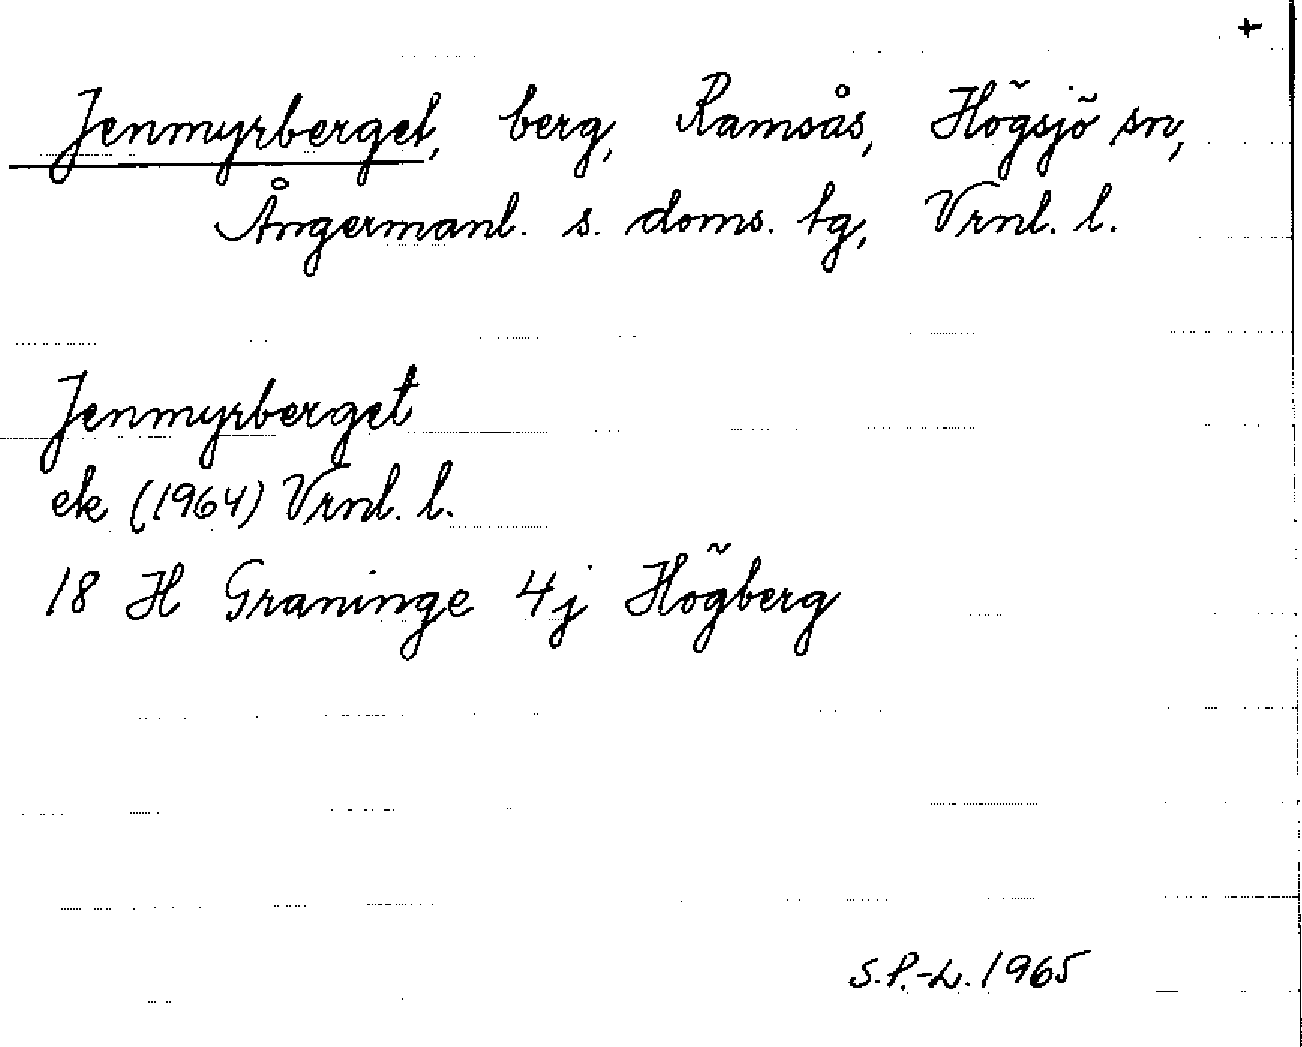 +
Jenmyrberget, berg, Ramsås, Högsjö sn,
Ångermanl. s. doms. tg, Vrnl. l.
Jenmyrberget
ek (1964) Vrnl. l.
18 H Graninge 4j Högberg
S.P.-L. 1965